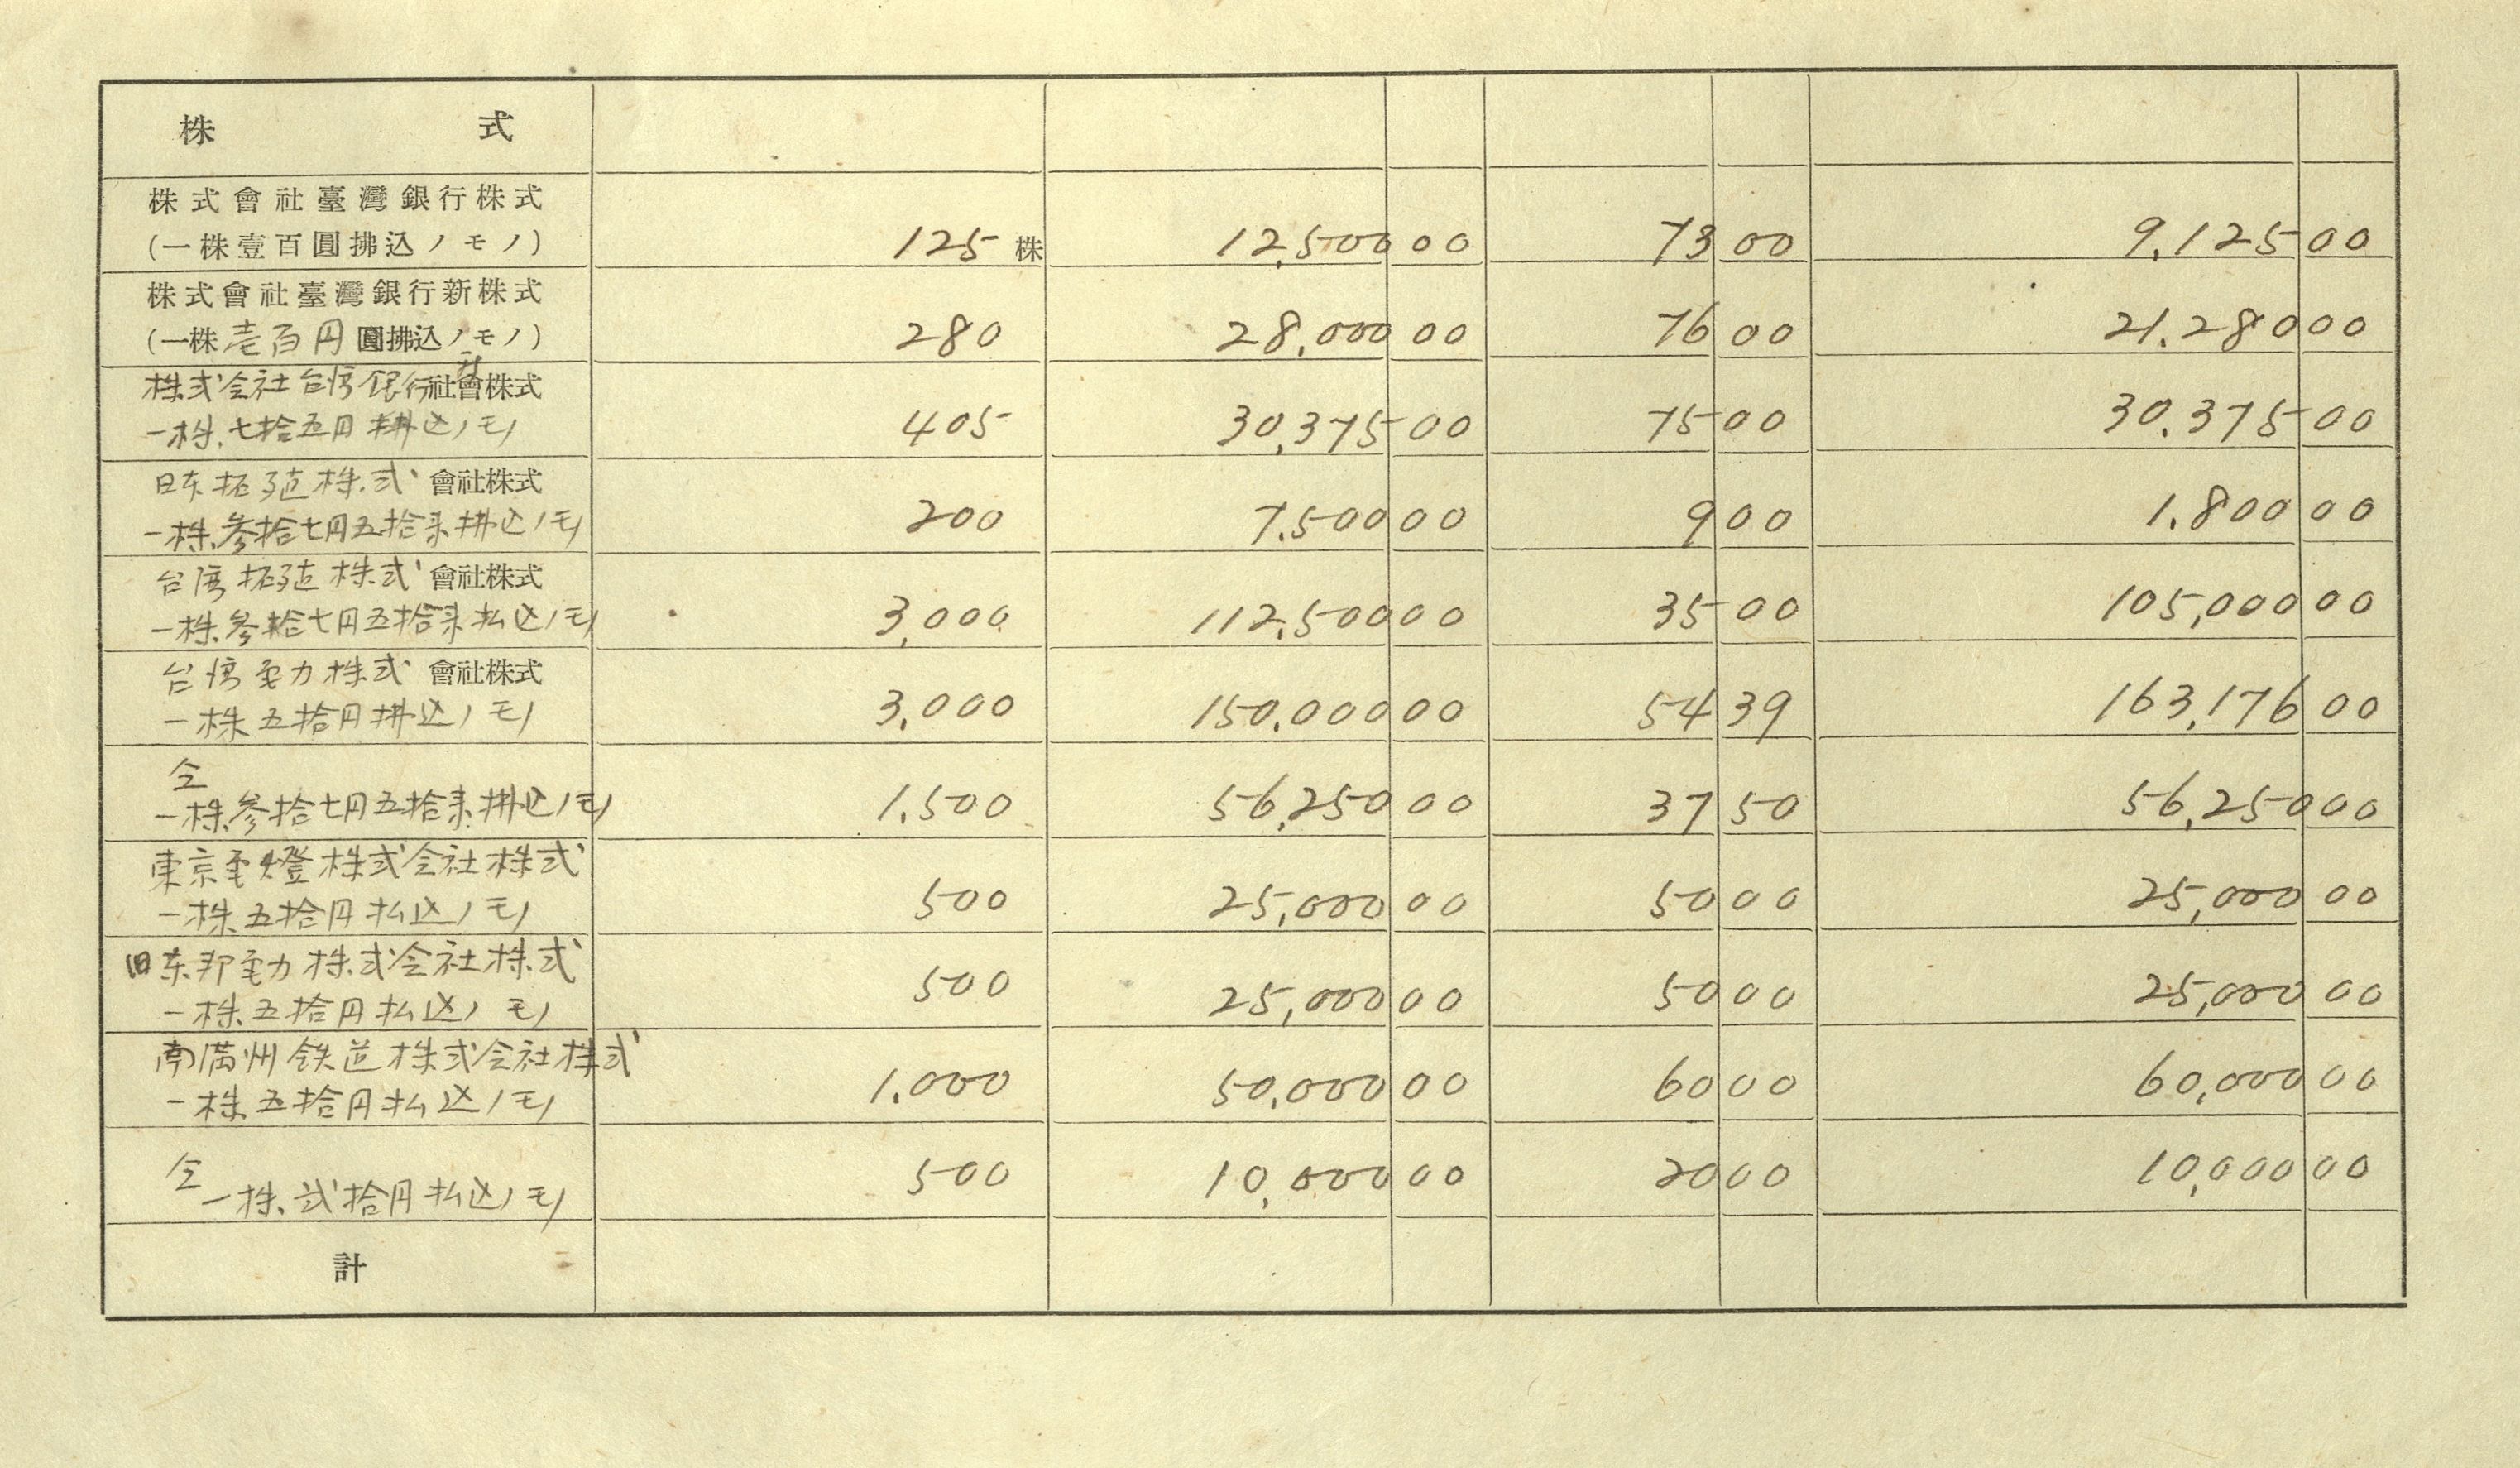 株式
株式會社臺灣銀行株式
(一株壹百圓拂込ノモノ) 125 株 12,500 00 73 00 9,125 00
株式會社臺灣銀行新株式
(一株壱百円圓拂込ノモノ) 280 28,000 00 76 00 21,280 00
株式会社台湾銀行新社會株式
一株七拾五円拂込ノモノ 405 30,375 00 75 00 30,375 00
日东拓殖株式會社株式
一株参拾七円五拾銭拂込ノモノ 200 7,500 00 9 00 1,800 00
台湾拓殖株式會社株式
一株参拾七円五拾銭払込ノモノ 3,000 112,500 00 35 00 105,000 00
台湾電力株式會社株式
一株五拾円拂込ノモノ 3,000 150,000 00 54 39 163,176 00
仝
一株参拾七円五拾銭拂込ノモノ 1,500 56,250 00 37 50 56,250 00
東京電燈株式会社株式
一株五拾円払込ノモノ 500 25,000 00 50 00 25,000 00
旧东邦電力株式会社株式
一株五拾円払込ノモノ 500 25,000 00 50 00 25,000 00
南満州鉄道株式会社株式
一株五拾円払込ノモノ 1,000 50,000 00 60 00 60,000 00
仝
一株弐拾円払込ノモノ 500 10,000 00 20 00 10,000 00
計